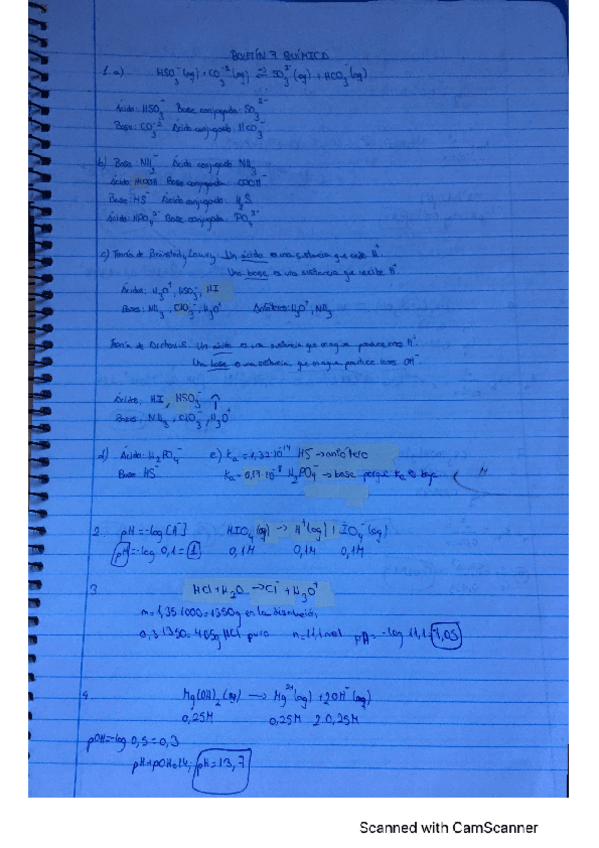 BOLETÍN 7 QUÍMICA
1. a) HSO₃⁻(aq) + CO₃⁻²(aq) ⇌ SO₃²⁻(aq) + HCO₃⁻(aq)
Ácido: HSO₃⁻ Base conjugada: SO₃²⁻
Base: CO₃⁻² Ácido conjugado: HCO₃⁻
b) Base NH₂⁻ Ácido conjugado NH₃
Ácido: HCOOH Base conjugada COOH⁻
Base: HS⁻ Ácido conjugado: H₂S
Ácido: HPO₄²⁻ Base conjugada: PO₄³⁻
c) Teoría de Brönsted-Lowry. Un ácido es una sustancia que cede H⁺.
Una base es una sustancia que recibe H⁺
Ácidos: H₃O⁺, HSO₃⁻, HI
Bases: NH₃, ClO₃⁻, H₃O⁺ Anfóteros: H₃O⁺, NH₃
Teoría de Arrhenius. Un ácido es una sustancia que en agua produce iones H⁺.
Una base es una sustancia que en agua produce iones OH⁻.
Ácidos: HI, HSO₃⁻
Bases: NH₃, ClO₃⁻, H₃O⁺
d) Ácido: H₂PO₄⁻ e) Ka = 1,32·10⁻¹⁴ HS⁻ → anfótero
Base: HS⁻ Ka = H₂PO₄⁻ → base porque Ka es baja
2. pH = -log [H⁺] HIO₄(aq) → H⁺(aq) + IO₄⁻(aq)
pH = -log 0,1 = 1 0,1M 0,1M 0,1M
3 HCl + H₂O → Cl⁻ + H₃O⁺
m = 1,35·1000 = 1350g en la disolución
0,3·1350 = 405g HCl puro n = 11,1 mol pH = -log 11,1 = 1,05
4 Mg(OH)₂(aq) → Mg²⁺(aq) + 2OH⁻(aq)
0,25M 0,25M 2·0,25M
pOH = -log 0,5 = 0,3
pH + pOH = 14; pH = 13,7
Scanned with CamScanner